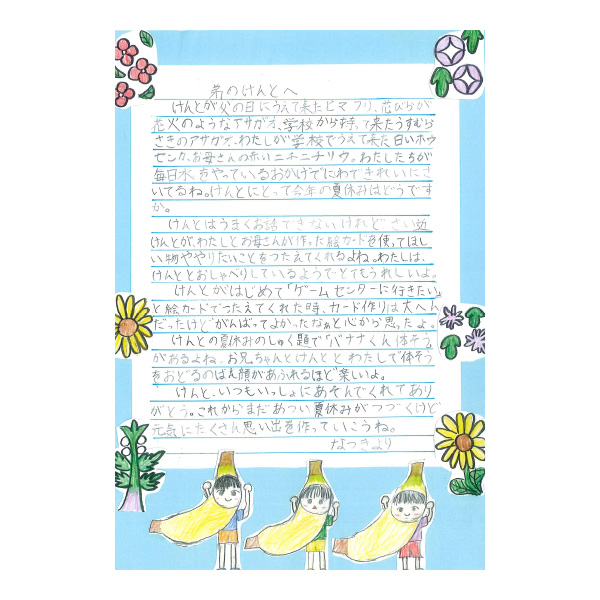 弟のけんとへ
けんとが父の日にうえて来たヒマワリ、花びらが
花火のようなアサガオ、学校から持って来たうすむら
さきのアサガオ、わたしが学校でうえて来た白いホウ
センカ、お母さんの赤いニチニチソウ。わたしたちが
毎日水をやっているおかげでにわできれいにさ
いてるね。けんとにとって今年の夏休みはどうです
か。
けんとはうまくお話できないけれど、さい近
けんとが、わたしとお母さんが作った絵カードを使ってほし
い物ややりたいことをつたえてくれるよね。わたしは、
けんととおしゃべりしているようでとてもうれしいよ。
けんとがはじめて「ゲームセンターに行きたい」
と絵カードでつたえてくれた時、カード作りは大へん
だったけどがんばってよかったなあと心から思ったよ。
けんとの夏休みのしゅく題で「バナナくん体そう」
があるよね。お兄ちゃんとけんととわたしで体そう
をおどるのはえ顔があふれるほど楽しいよ。
けんと、いつもいっしょにあそんでくれてあり
がとう。これからまだあつい夏休みがつづくけど
元気にたくさん思い出を作っていこうね。
なつきより